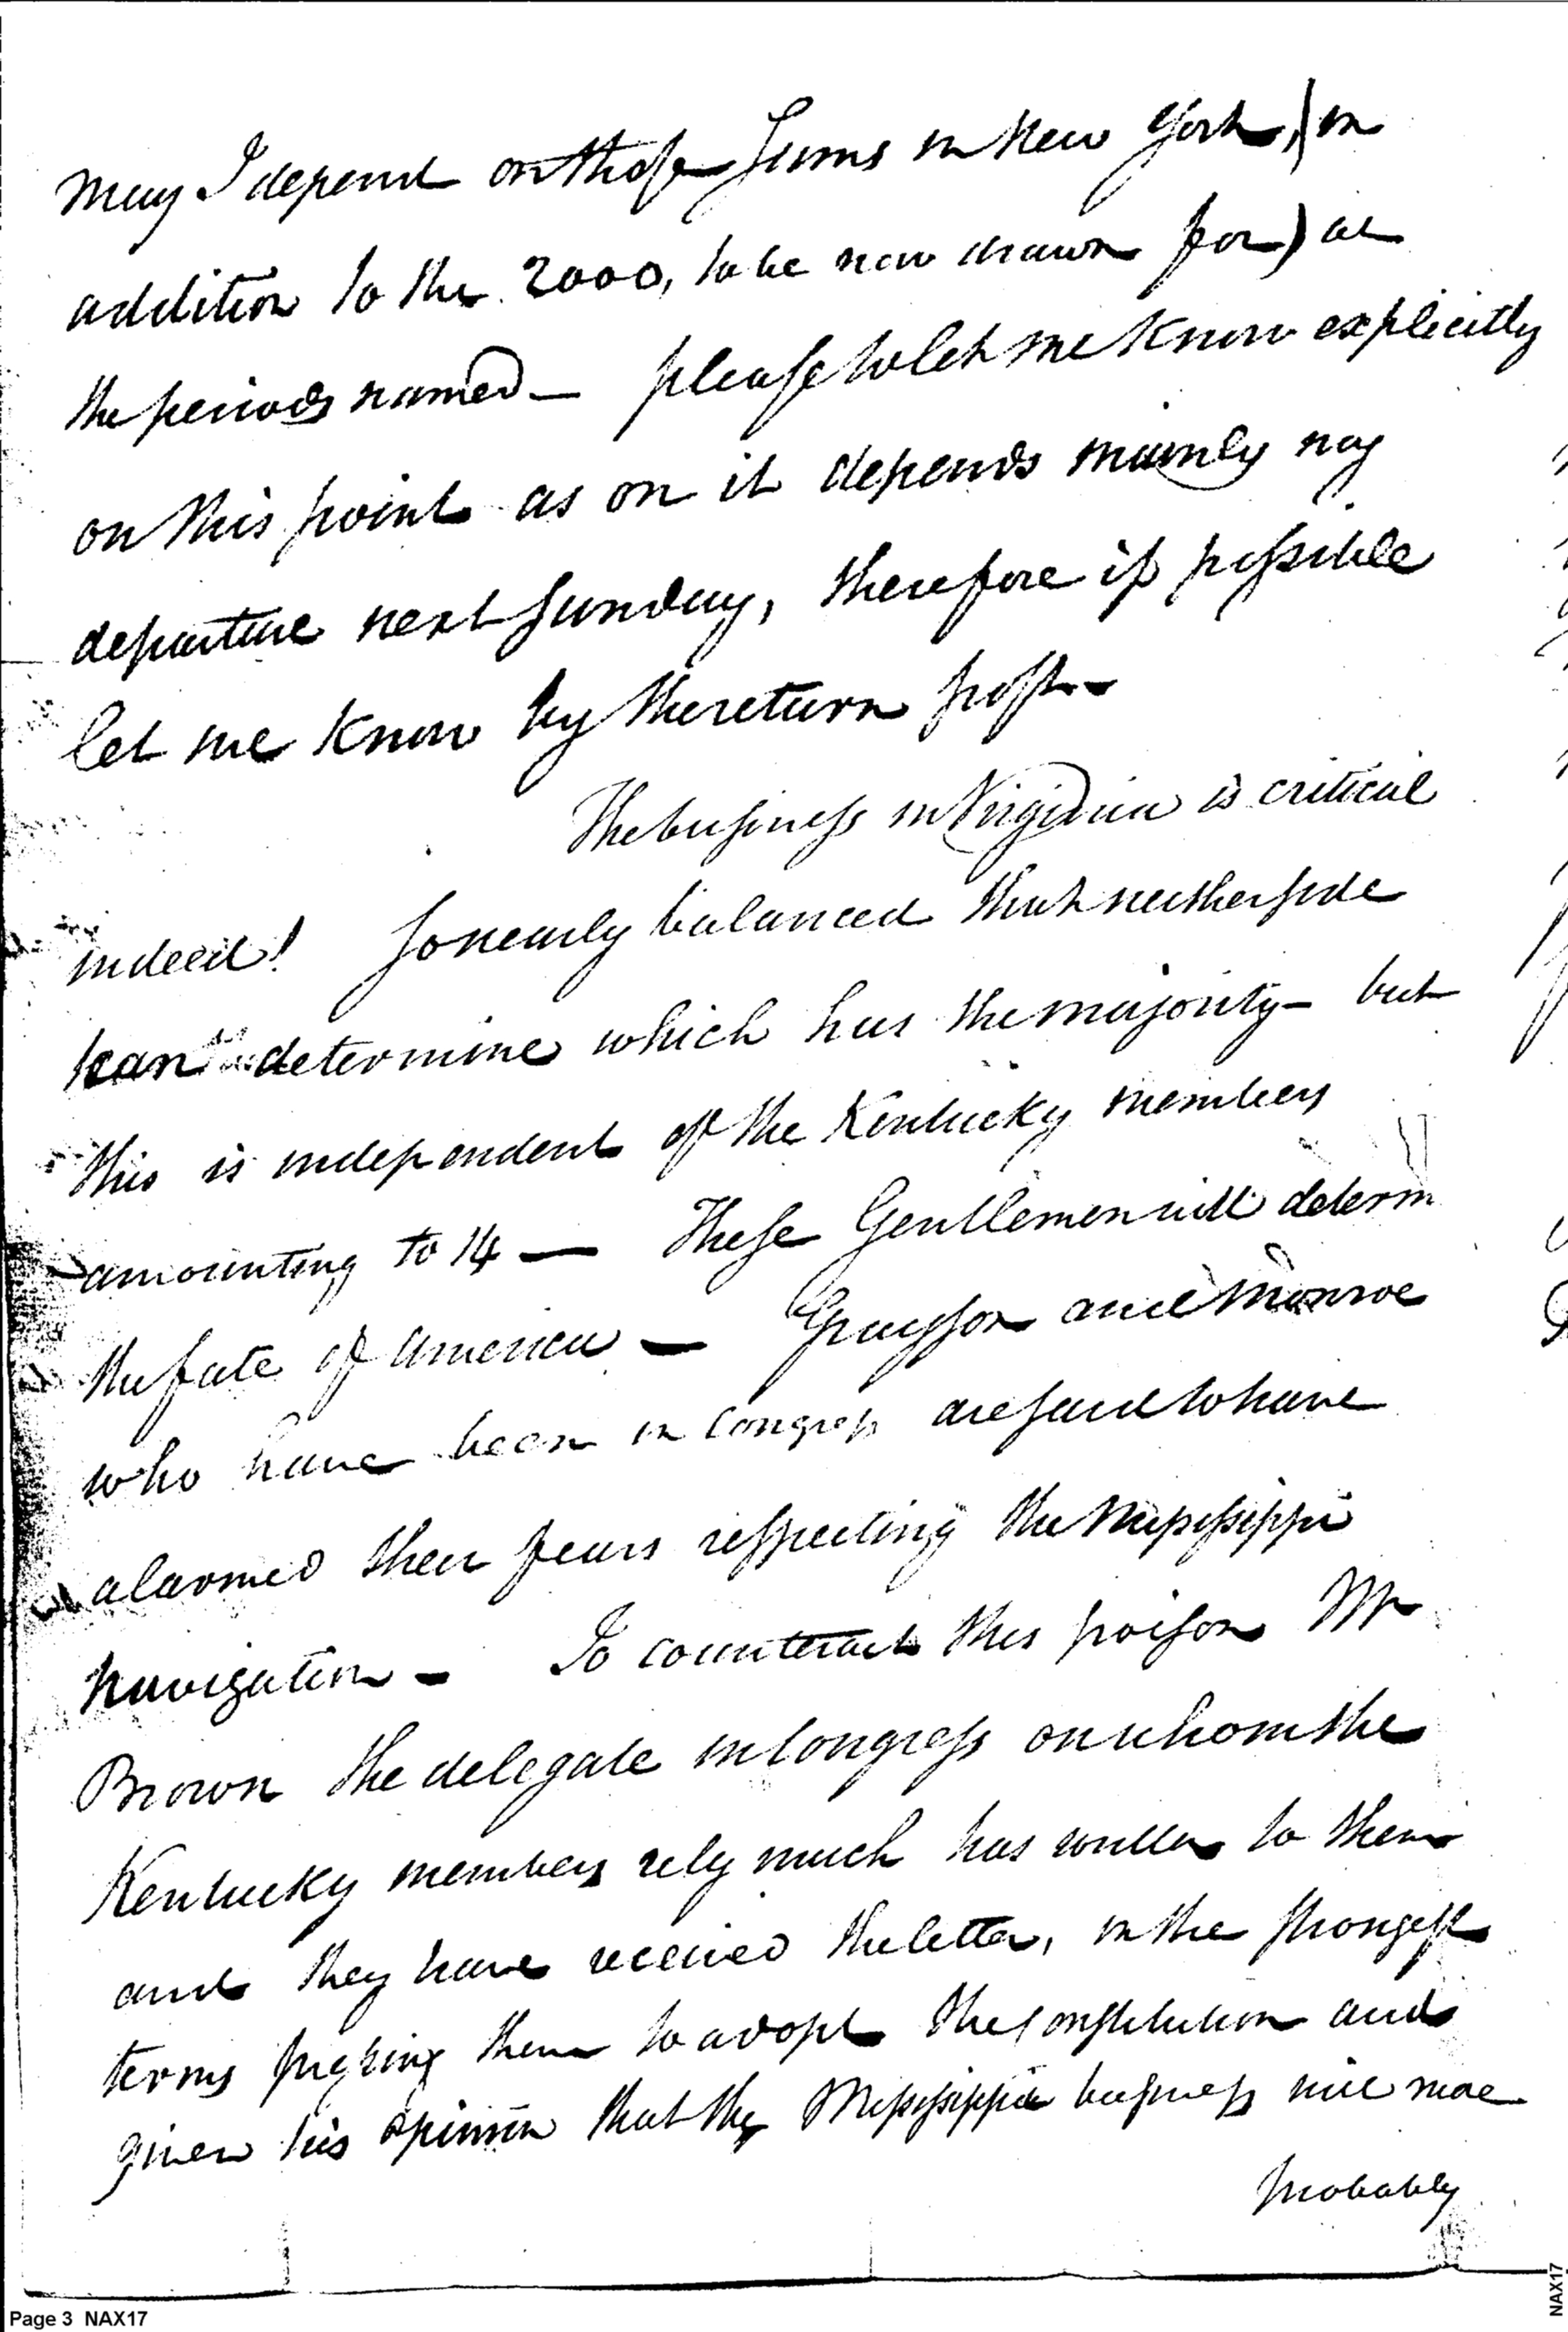 may I depend on those sums in New York, (in
addition to the 2000, to be now drawn for) at
the periods named — please to let me know explicitly
on this point as on it depends mainly my
departure next sunday, therefore if possible
let me know by the return post —
The business in Virginia is critical
indeed! So nearly balanced that neither side
can determine which has the majority — but
this is independent of the Kentucky members
amounting to 14 — These Gentlemen will determ
the fate of America — Grayson and Monroe
who have been in Congress are said to have
alarmed their fears respecting the Missisippi
navigation — To counteract this poison Mr
Brown the delegate in Congress on whom the
Kentucky members rely much has written to them
and they have received the letter, in the strongest
terms pressing them to adopt the Constitution and
given his opinion that the Missisippi business will more
probably
Page 3 NAX17
NAX17